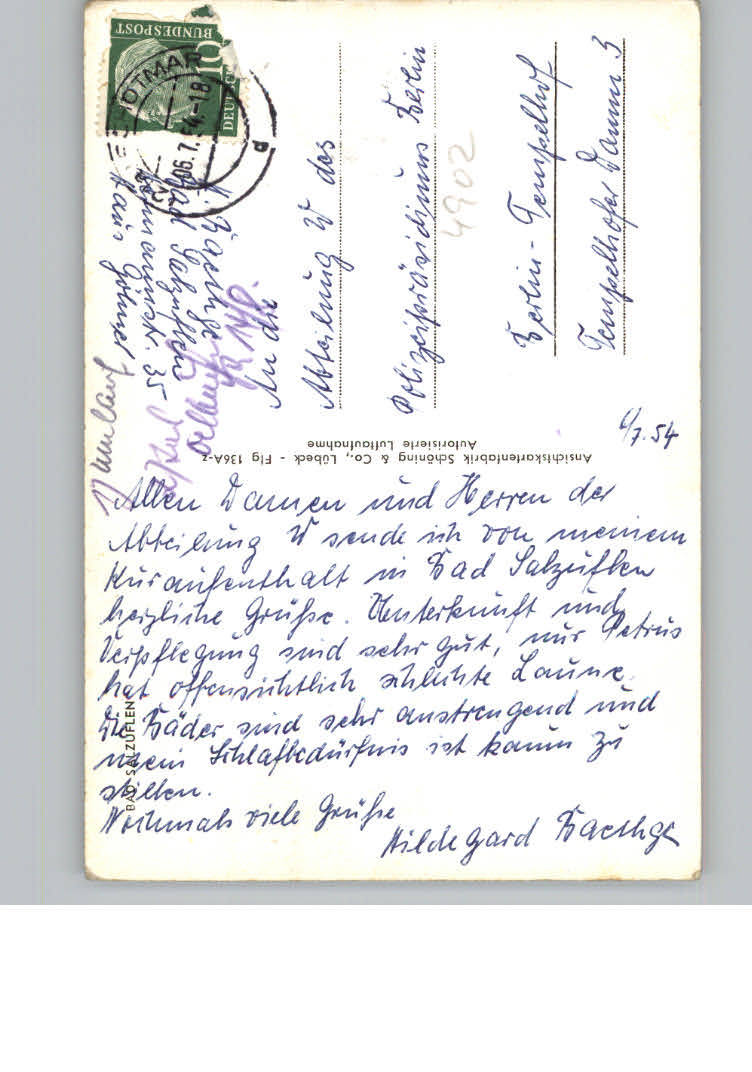 6/7. 54
Allen Damen und Herren der
Abteilung W sende ich von meinem
Kuraufenthalt in Bad Salzuflen
herzliche Grüße. Unterkunft und
Verpflegung sind sehr gut, nur Petrus
hat offensichtlich schlechte Laune.
Die Bäder sind sehr anstrengend und
mein Schlafbedürfnis ist kaum zu
stillen.
Nochmals viele Grüße
Hildegard Baethge
BAD SALZUFLEN
Ansichtskartenfabrik Schöning & Co., Lübeck - Flg 136A-z
Autorisierte Luftaufnahme
Umlauf
H. Baethge
Bad Salzuflen
35
Haus
An die
Abteilung W des
Polizeipräsidiums Berlin
Berlin-Tempelhof
Tempelhofer Damm 3
4902
DEUTSCHE
BUNDESPOST
10
06.7.54.-18
d